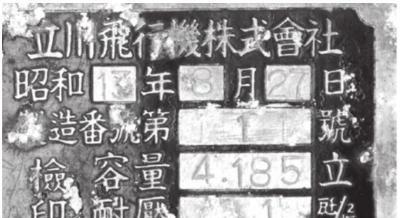 立川飛行機株式會社
昭和13年8月27日
造番號第 111 號
檢容量 4.185 立
印耐壓 1